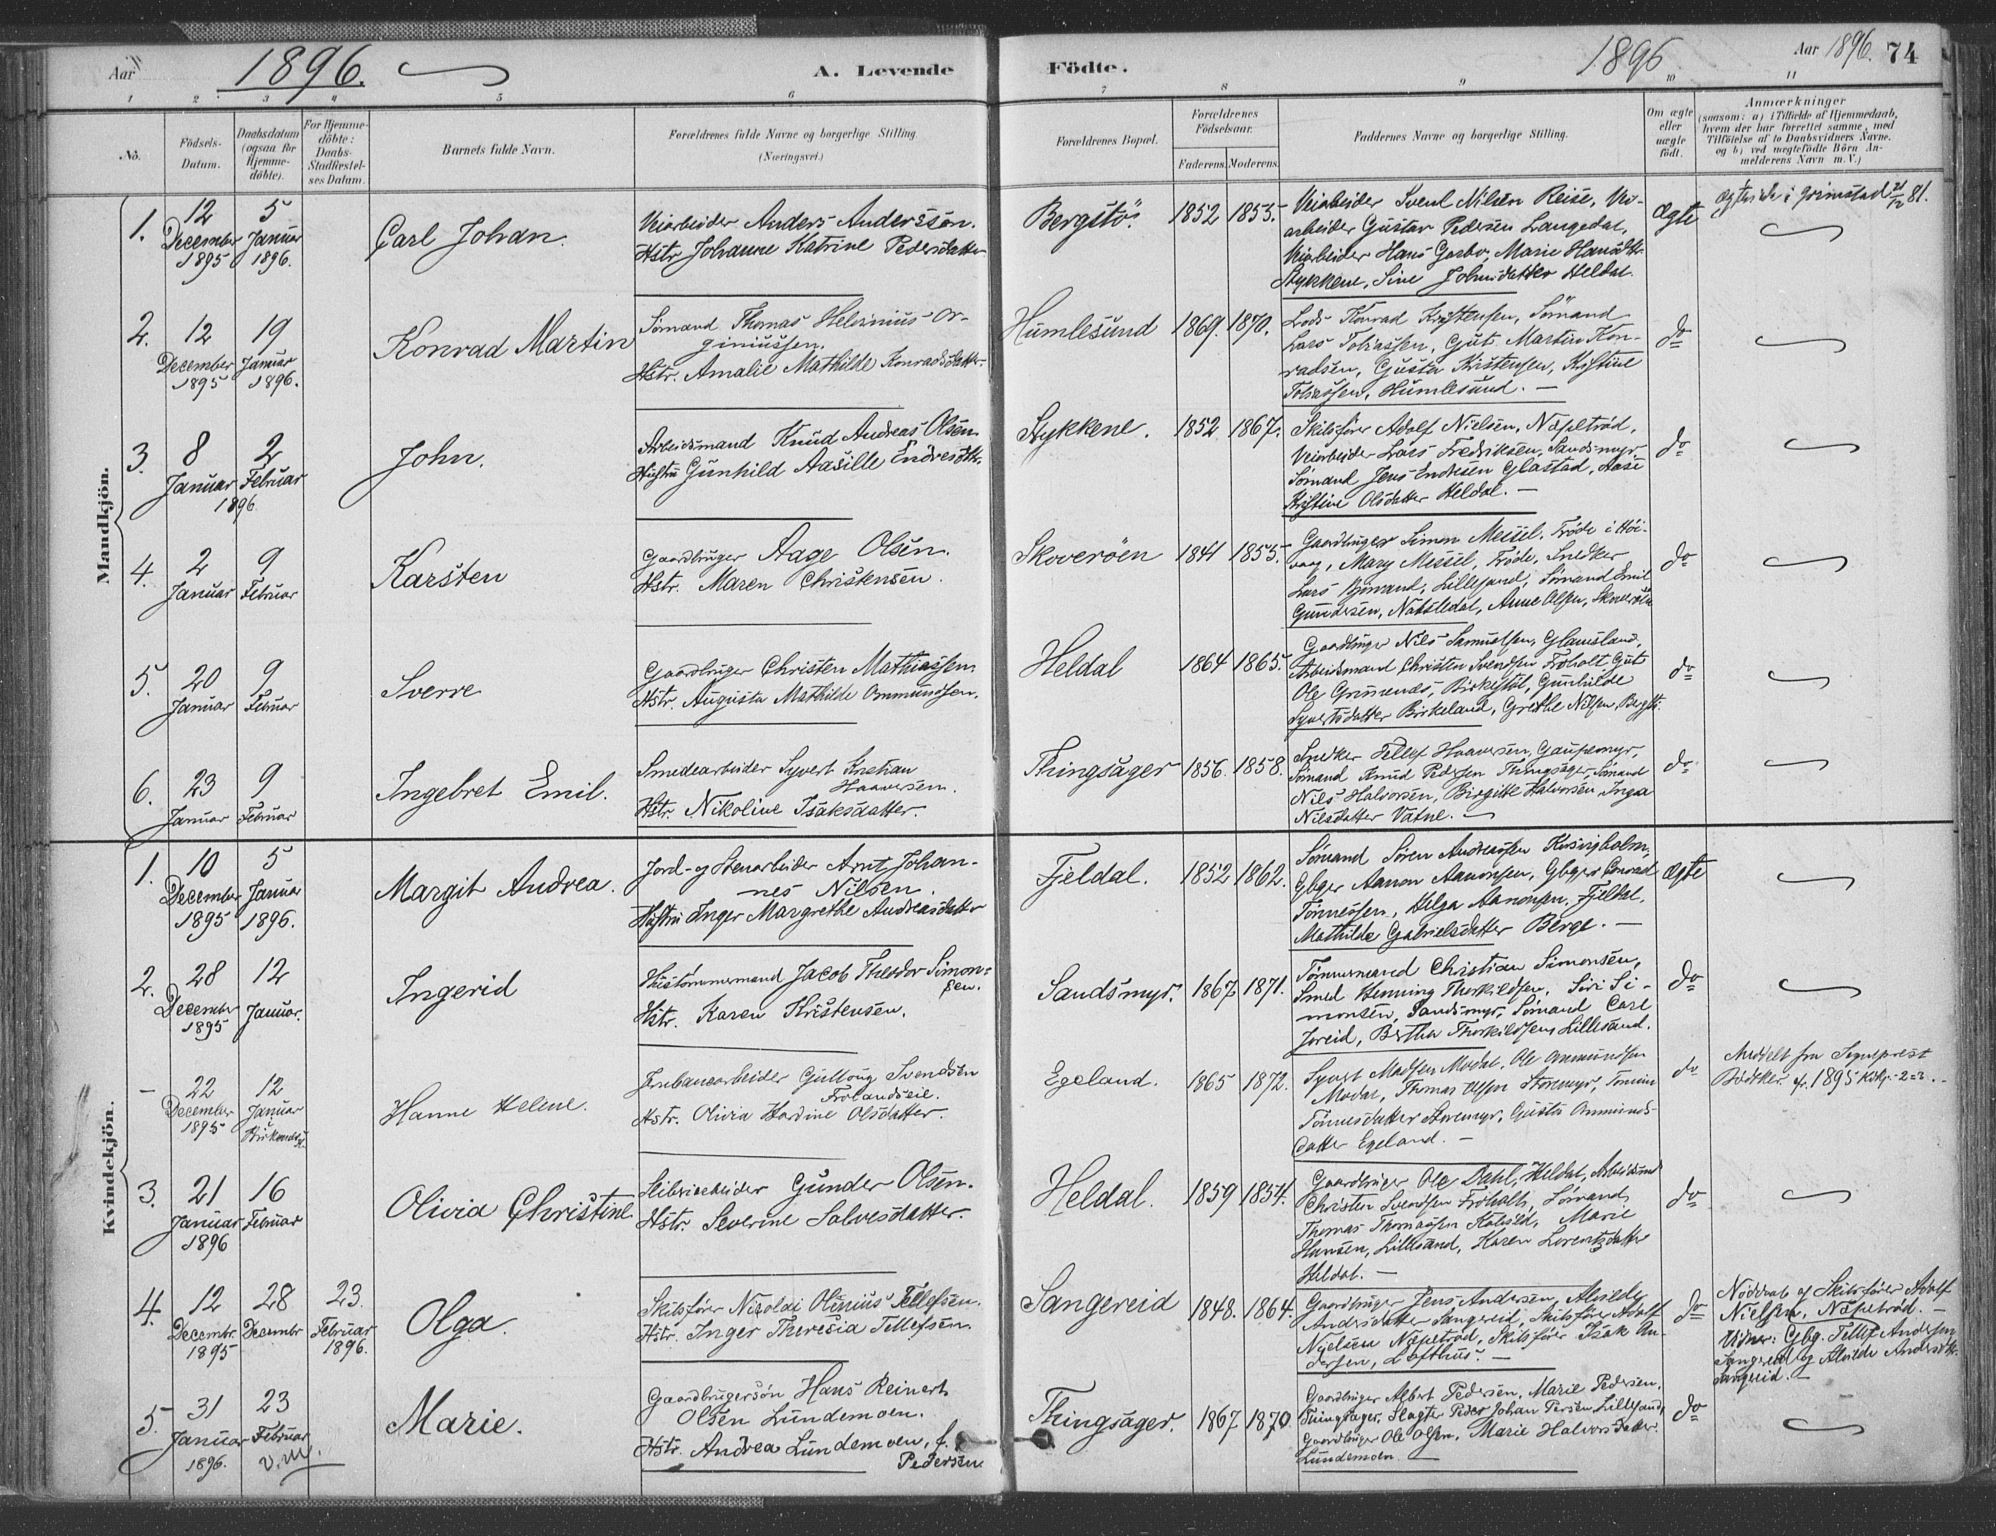 Aar
1896.
A. Levende
Födte.
1896
Aar 1896.
74
1
2.
3
4
5
6
7
8
9
10
11
No.
Födsels-
Datum.
Daabsdatum
(ogsaa for
Hjemme-
döbte).
For Hjemme-
döbte:
Daabs-
Stadfæstel-
ses Datum.
Barnets fulde Navn.
Forældrenes fulde Navne og borgerlige Stilling.
(Næringsvei.)
Forældrenes Bopæl.
Forældrenes
Födselsaar.
Faderens.
Moderens.
Faddernes Navne og borgerlige Stilling.
Om ægte
eller
uægte
födt.
Anmærkninger
(saasom: a) i Tilfælde af Hjemmedaab,
hvem der har forrettet samme, med
Tilföielse af to Daabsvidners Navne,
og b) ved uægtefödte Börn An-
melderens Navn m. V.)
Mandkjön.
1.
12
December
1895
5
Januar
1896.
Carl Johan.
Veiarbeider Anders Anderssen.
Hstr. Johanne Katrine Pedersdatter
Bergstö.
1852
1855.
Veiarbeider Svend Nilsen Reise, Vei-
arbeider Gustav Pedersen Langedal,
Veiarbeider Hans Garbo, Marie Hansdtr.
Stykkene, Sine Johnsdatter Heldal.
Ægte
Ægteviede i Grimstad 21/12 81.
2.
12
December
1895
19
Januar
1896.
Konrad Martin
Sömand Thomas Or-
giniussen.
Hstr. Amalie Mathilde Konradsdatter.
Humlesund
1869.
1870.
Lods Konrad Kristensen, Sömand
Lars Tobiassen, Gut Martin Kon-
radsen, Gusta Kristensen, Kristine
Tobiassen, Humlesund. —
do
3.
8
Januar
2
Februar
1896
John.
Arbeidsmand Knud Andreas Olsen
Hustru Gunhild Aasille Endresdtr.
Stykkene.
1852
1867.
Skibsförer Adolf Nielsen, Næpetröd,
Veiarbeider Lars Fredriksen, Sandsmyr,
Sömand Jens Endresen Glastad, Aase
Kristine Olsdatter Heldal. —
do
4.
2
Januar
9
Februar
Karsten
Gaardbruger Aage Olsen.
Hstr. Maren Christensen.
Skoveröen
1841
1855
Gaardbruger Simon Messel, Tröde i Höi-
vaag, Mary Messel, Tröde, Snedker
Lars Lillesand, Sömand Emil
Gundersen, Anne Olsen, Skoveröen
do
5.
20
Januar
9
Februar
Sverre
Gaardbruger Christen Mathiassen.
Hstr. Augusta Mathilde Ommundsen.
Heldal
1864
1865.
Gaardbruger Nils Samuelsen, Glamsland,
Arbeidsmand Christen Svendsen Froholt, Gut
Ole Birkestöl, Gunhilde
Syvertsdatter Birkeland, Grethe Nilsen, Bergstö.
do
6.
23
Januar
9
Februar
Ingebret Emil.
Smedearbeider Syvert Kristian
Haaversen.
Hstr. Nikoline Isaksdatter.
Thingsager
1856.
1858.
Snedker Tellef Haaversen, Gaupemyr,
Sömand Knud Pedersen Thingsager, Sömand
Nils Halvorsen, Birgitte Halvorsen, Inga
Nilsdatter Vatne.
do
Kvindekjön.
1.
10
December
1895
5
Januar
1896.
Margit Andrea.
Jord- og Stenarbeider Arnt Johan-
nes Nilsen.
Hustru Inger Margrethe Andreasdatter
Fjeldal.
1852
1862.
Sömand Sören Andreassen
Gbger Aanon Aanonsen, Gbger Conrad
Tönnessen, Helga Aanonsen, Fjeldal,
Mathilde Gabrielsdatter Berge. —
Ægte
2.
28
December
1895
12
Januar.
Ingerid
Hustömmermand Jacob Theodor Simon-
sen.
Hstr. Karen Kristensen.
Sandsmyr.
1867
1871.
Tömmermand Christian Simonsen,
Smed Henning Thorkildsen, Siri Si-
monsen, Sandsmyr, Sömand Carl
Joreid, Bertha Thorkildsen, Lillesand.
do
—
22
December
1895
12
Januar
Hanne Helene.
Jernbanearbeider Gulloug Svendsen
Frolandseie.
Hstr. Olivia Hardine Olsdatter.
Egeland.
1865
1872.
Syvert Madsen Modal, Ole Ommundsen
Modal, Thomas Olsen Storemyr, Tomine
Tönnesdatter Storemyr, Gusta Ommunds-
datter Egeland. —
do
Meddelt fra Sogneprest
Bödtker
3.
21
Januar
1896
16
Februar
Olivia Christine
Gunder Olsen.
Hstr. Severine Salvesdatter.
Heldal.
1859
1854.
Gaardbruger Ole Dahl, Heldal, Arbeidsmd
Christen Svendsen Froholt, Sömand
Thomas Thomassen Marie
Hansen, Lillesand, Karen Lorentzdatter
Heldal. —
do
4.
12
Decembr.
1895
28
Decembr
23.
Februar
1896.
Olga.
Skibsförer Nicolai Olinius Tellefsen.
Hstr. Inger Theresia Tellefsen.
Sangereid
1848.
1864.
Gaardbruger Jens Andersen, Alvilde
Andersdatter Sangereid, Skibsförer Adolf
Nielsen Næpetröd, Skibsförer Isak An-
dersen, Lofthus. —
do
Nöddaab af Skibsförer Adolf
Nielsen, Næpetröd. —
Vidner: Gbg. Tellef Andersen
Sangereid og Alvilde Andersdtr.
Sangereid.
5.
31
Januar
1896.
23
Februar
v. m.
Marie.
Gaardbrugersön Hans Reinert
Olsen Lundemoen.
Hstr. Andrea Lundemoen, f.
Pedersen
Thingsager.
1867
1870
Gaardbruger Albert Pedersen, Marie Pedersen,
Thingsager, Slagter Peder Johan Persen Lillesand,
Gaardbruger Ole Olsen, Marie Halvorsdatter
Lundemoen.
do